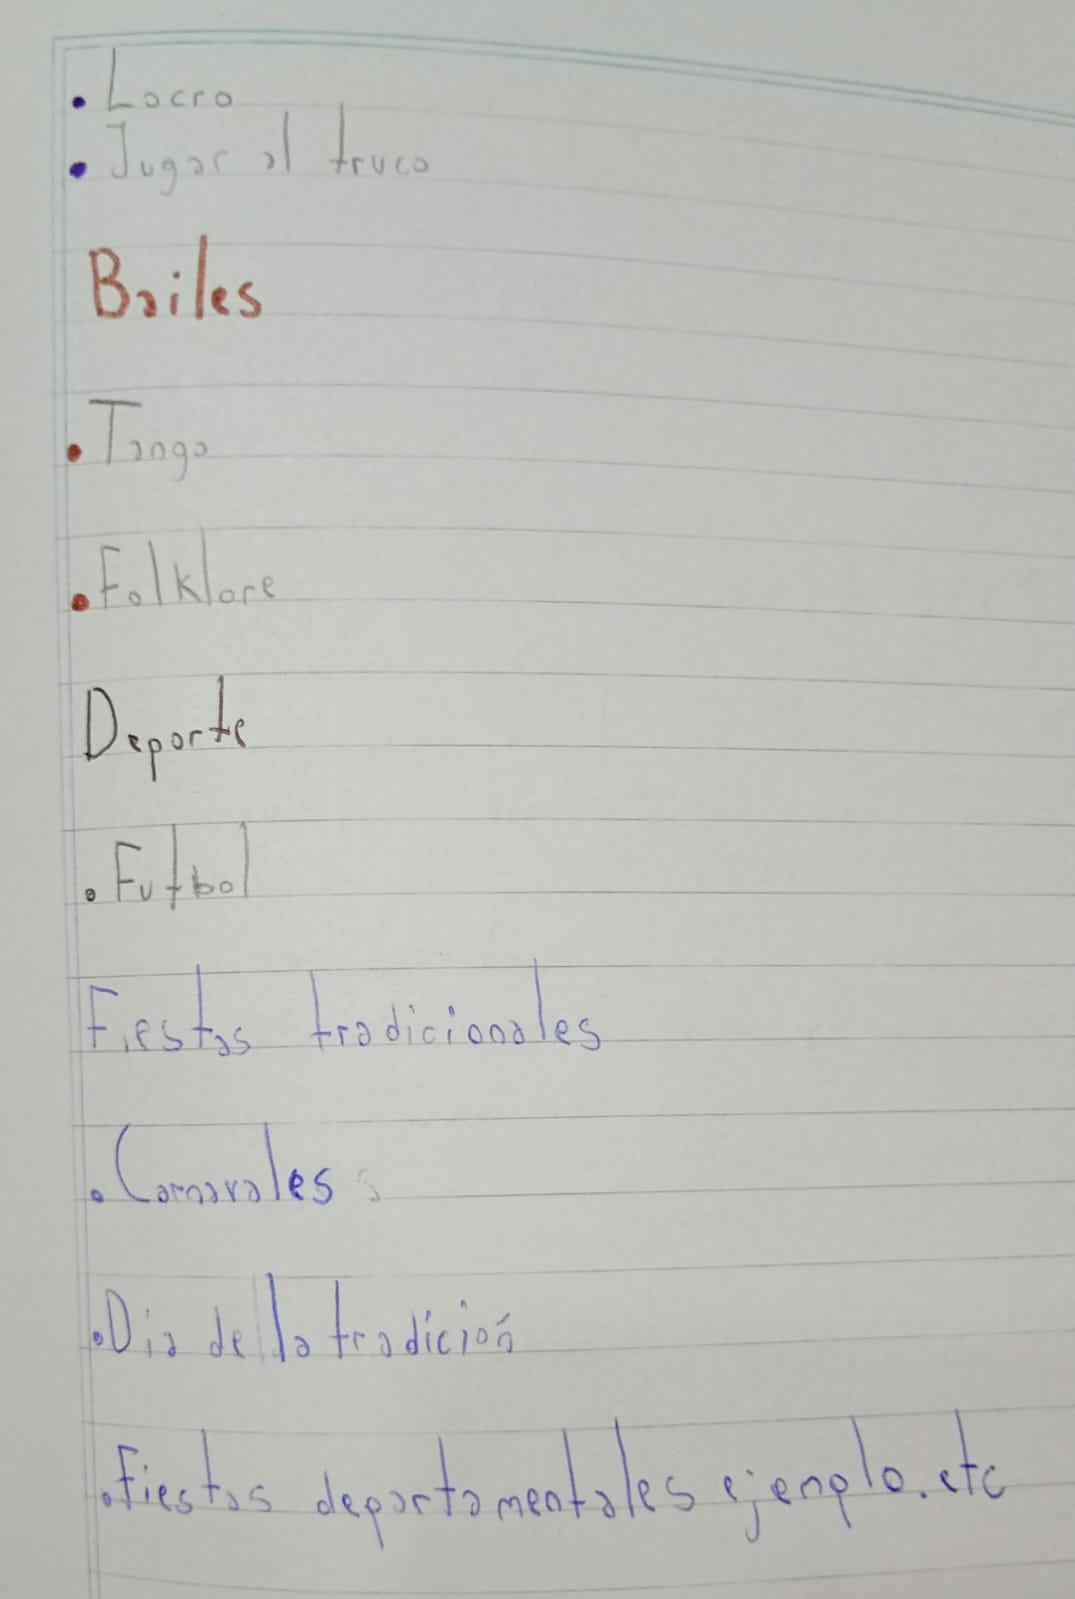 • Locro
• Jugar al truco
Bailes
• Tango
• Folklore
Deporte
• Futbol
Fiestas tradicionales
• Carnavales s
• Dia de la tradición
• Fiestas departamentales ejemplo. etc